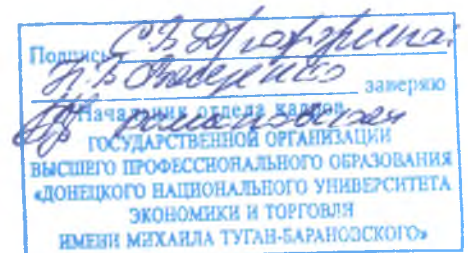 Подпись С.В. Дрожжина,
заверяю
Начальник отдела кадров
ГОСУДАРСТВЕННОЙ ОРГАНИЗАЦИИ
ВЫСШЕГО ПРОФЕССИОНАЛЬНОГО ОБРАЗОВАНИЯ
«ДОНЕЦКОГО НАЦИОНАЛЬНОГО УНИВЕРСИТЕТА
ЭКОНОМИКИ И ТОРГОВЛИ
ИМЕНИ МИХАИЛА ТУГАН-БАРАНОВСКОГО»